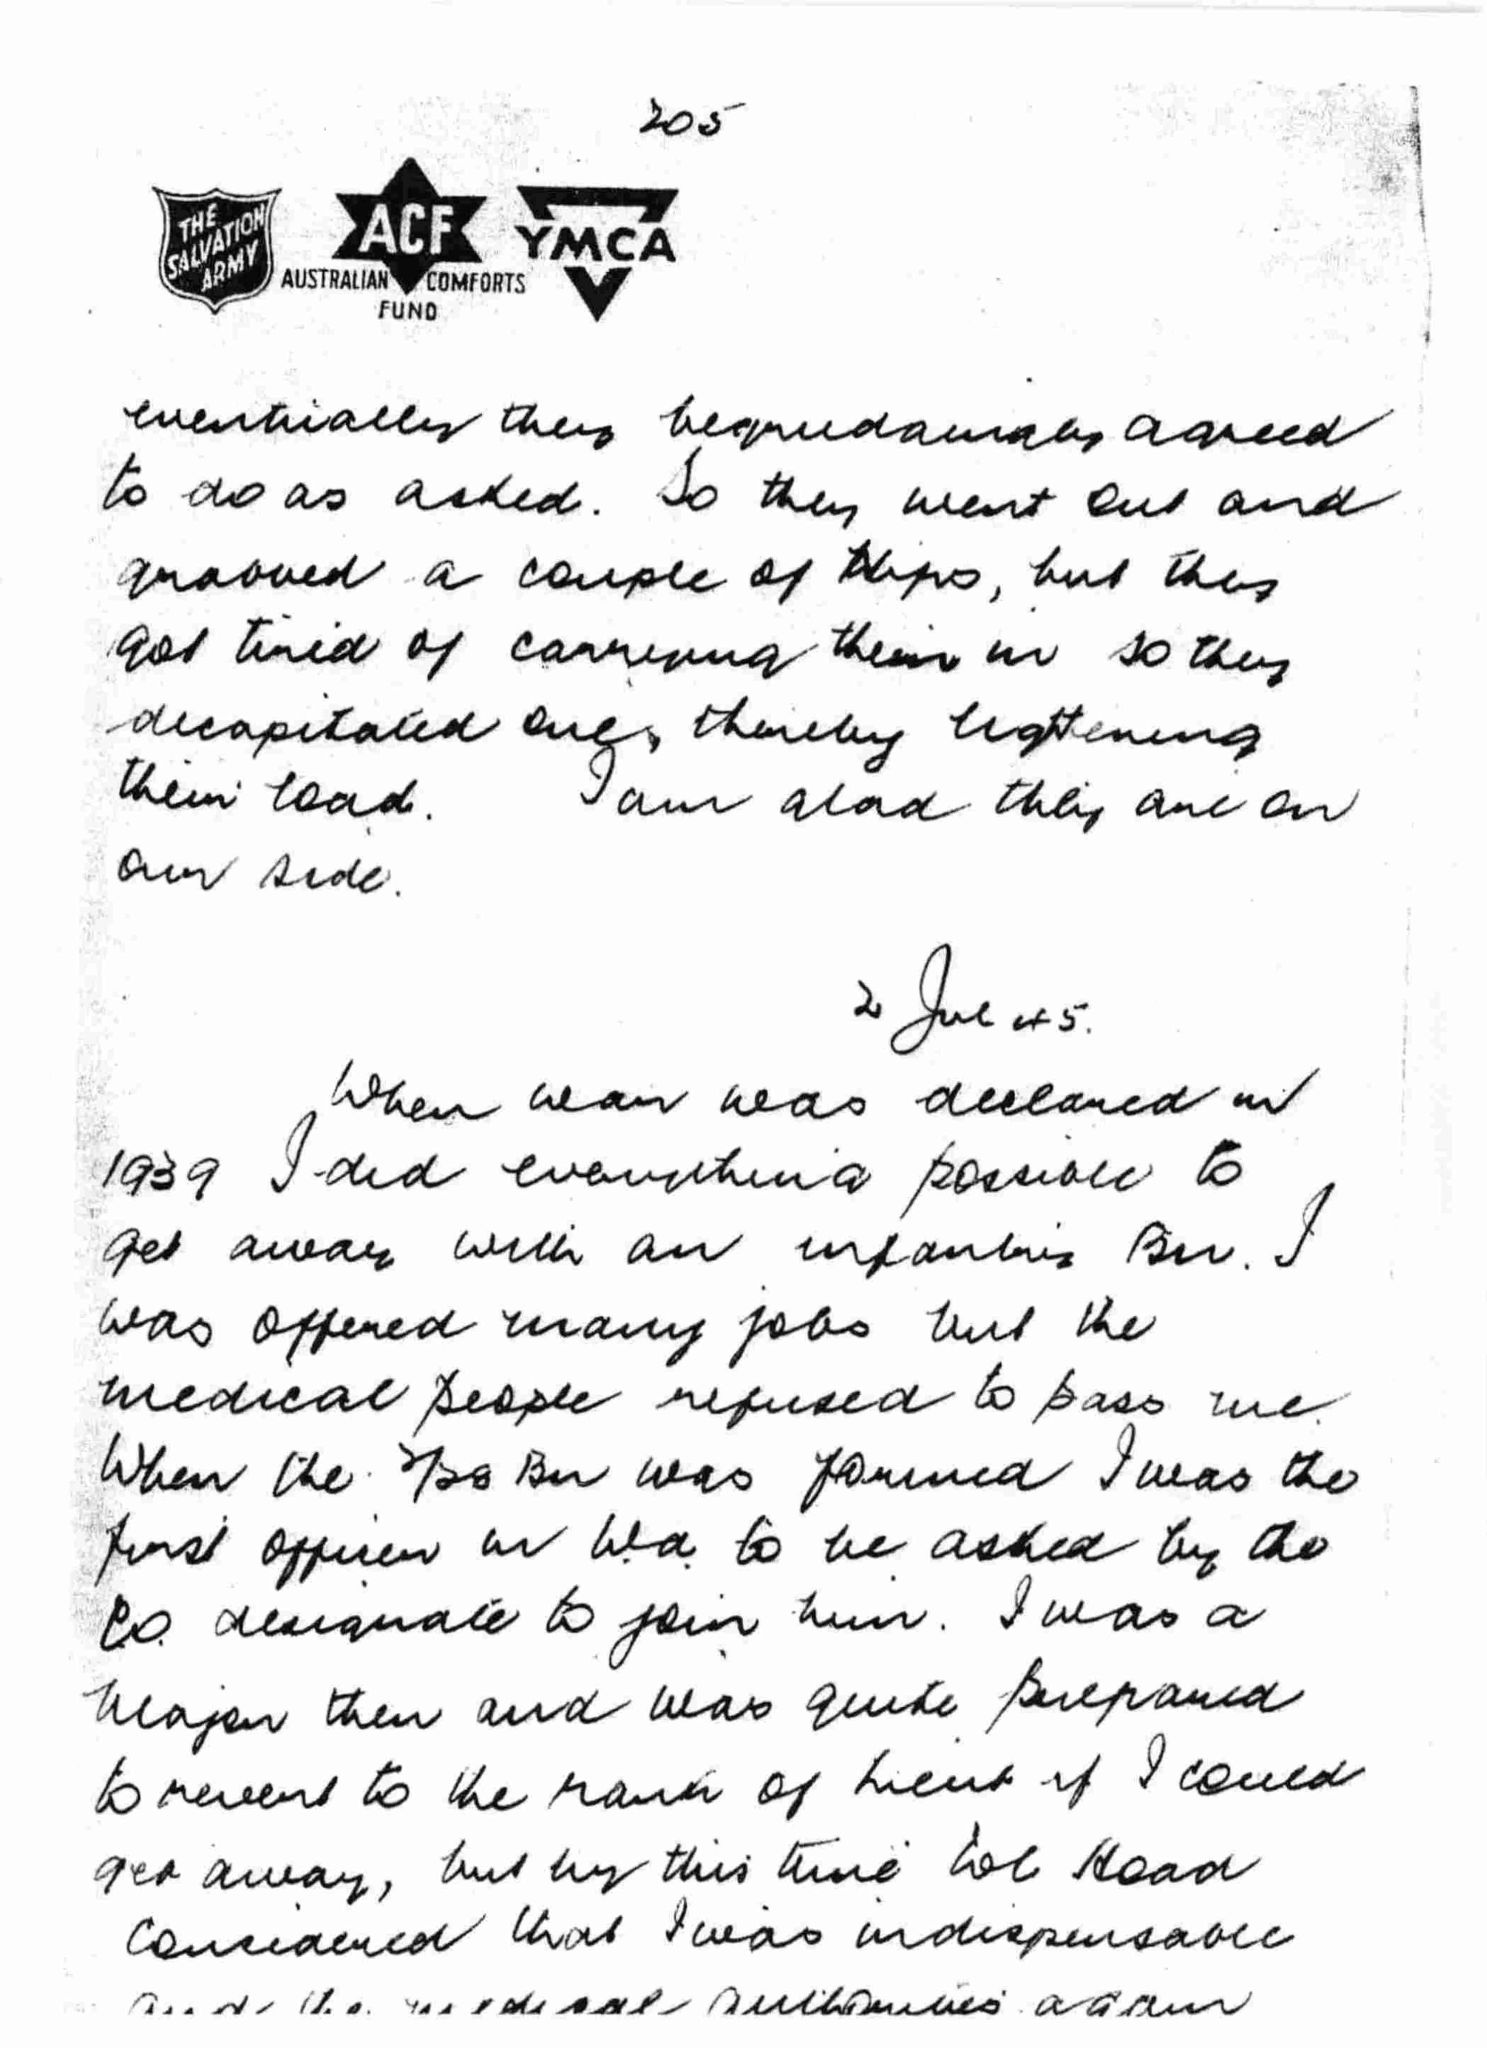 205
THE
SALVATION
ARMY
ACF
AUSTRALIAN COMFORTS
FUND
YMCA
eventually they begrudgingly agreed
to do as asked. So they went out and
grooved a couple of Nips, but they
got tired of carrying them in so they
decapitated one, thereby lightening
their load. I am glad they are on
our side.
2 Jul 45.
When war was declared in
1939 I did everything possible to
get away with an infantry Bn. I
was offered many jobs but the
medical people refused to pass me.
When the Bn was formed I was the
first officer in W.A. to be asked by the
C.O. designate to join him. I was a
Major then and was quite prepared
to revert to the rank of Lieut if I could
get away, but by this time Col Hoad
considered that I was indispensable
and the medical authorities again